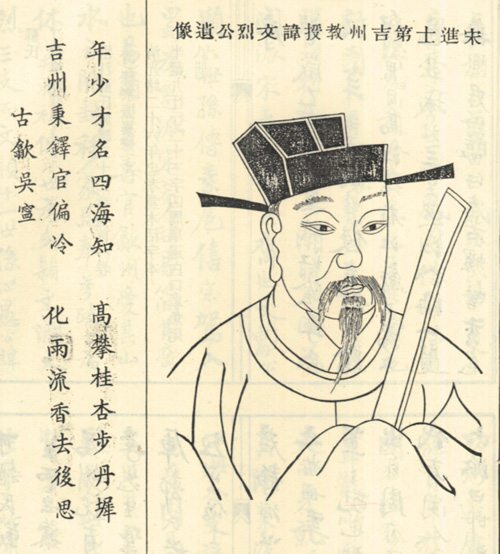 宋進士第吉州教授諱文烈公遺像
年少才名四海知 高攀桂杏步丹墀
吉州秉鐸官偏冷 化雨流香去後思
古歙吳寧